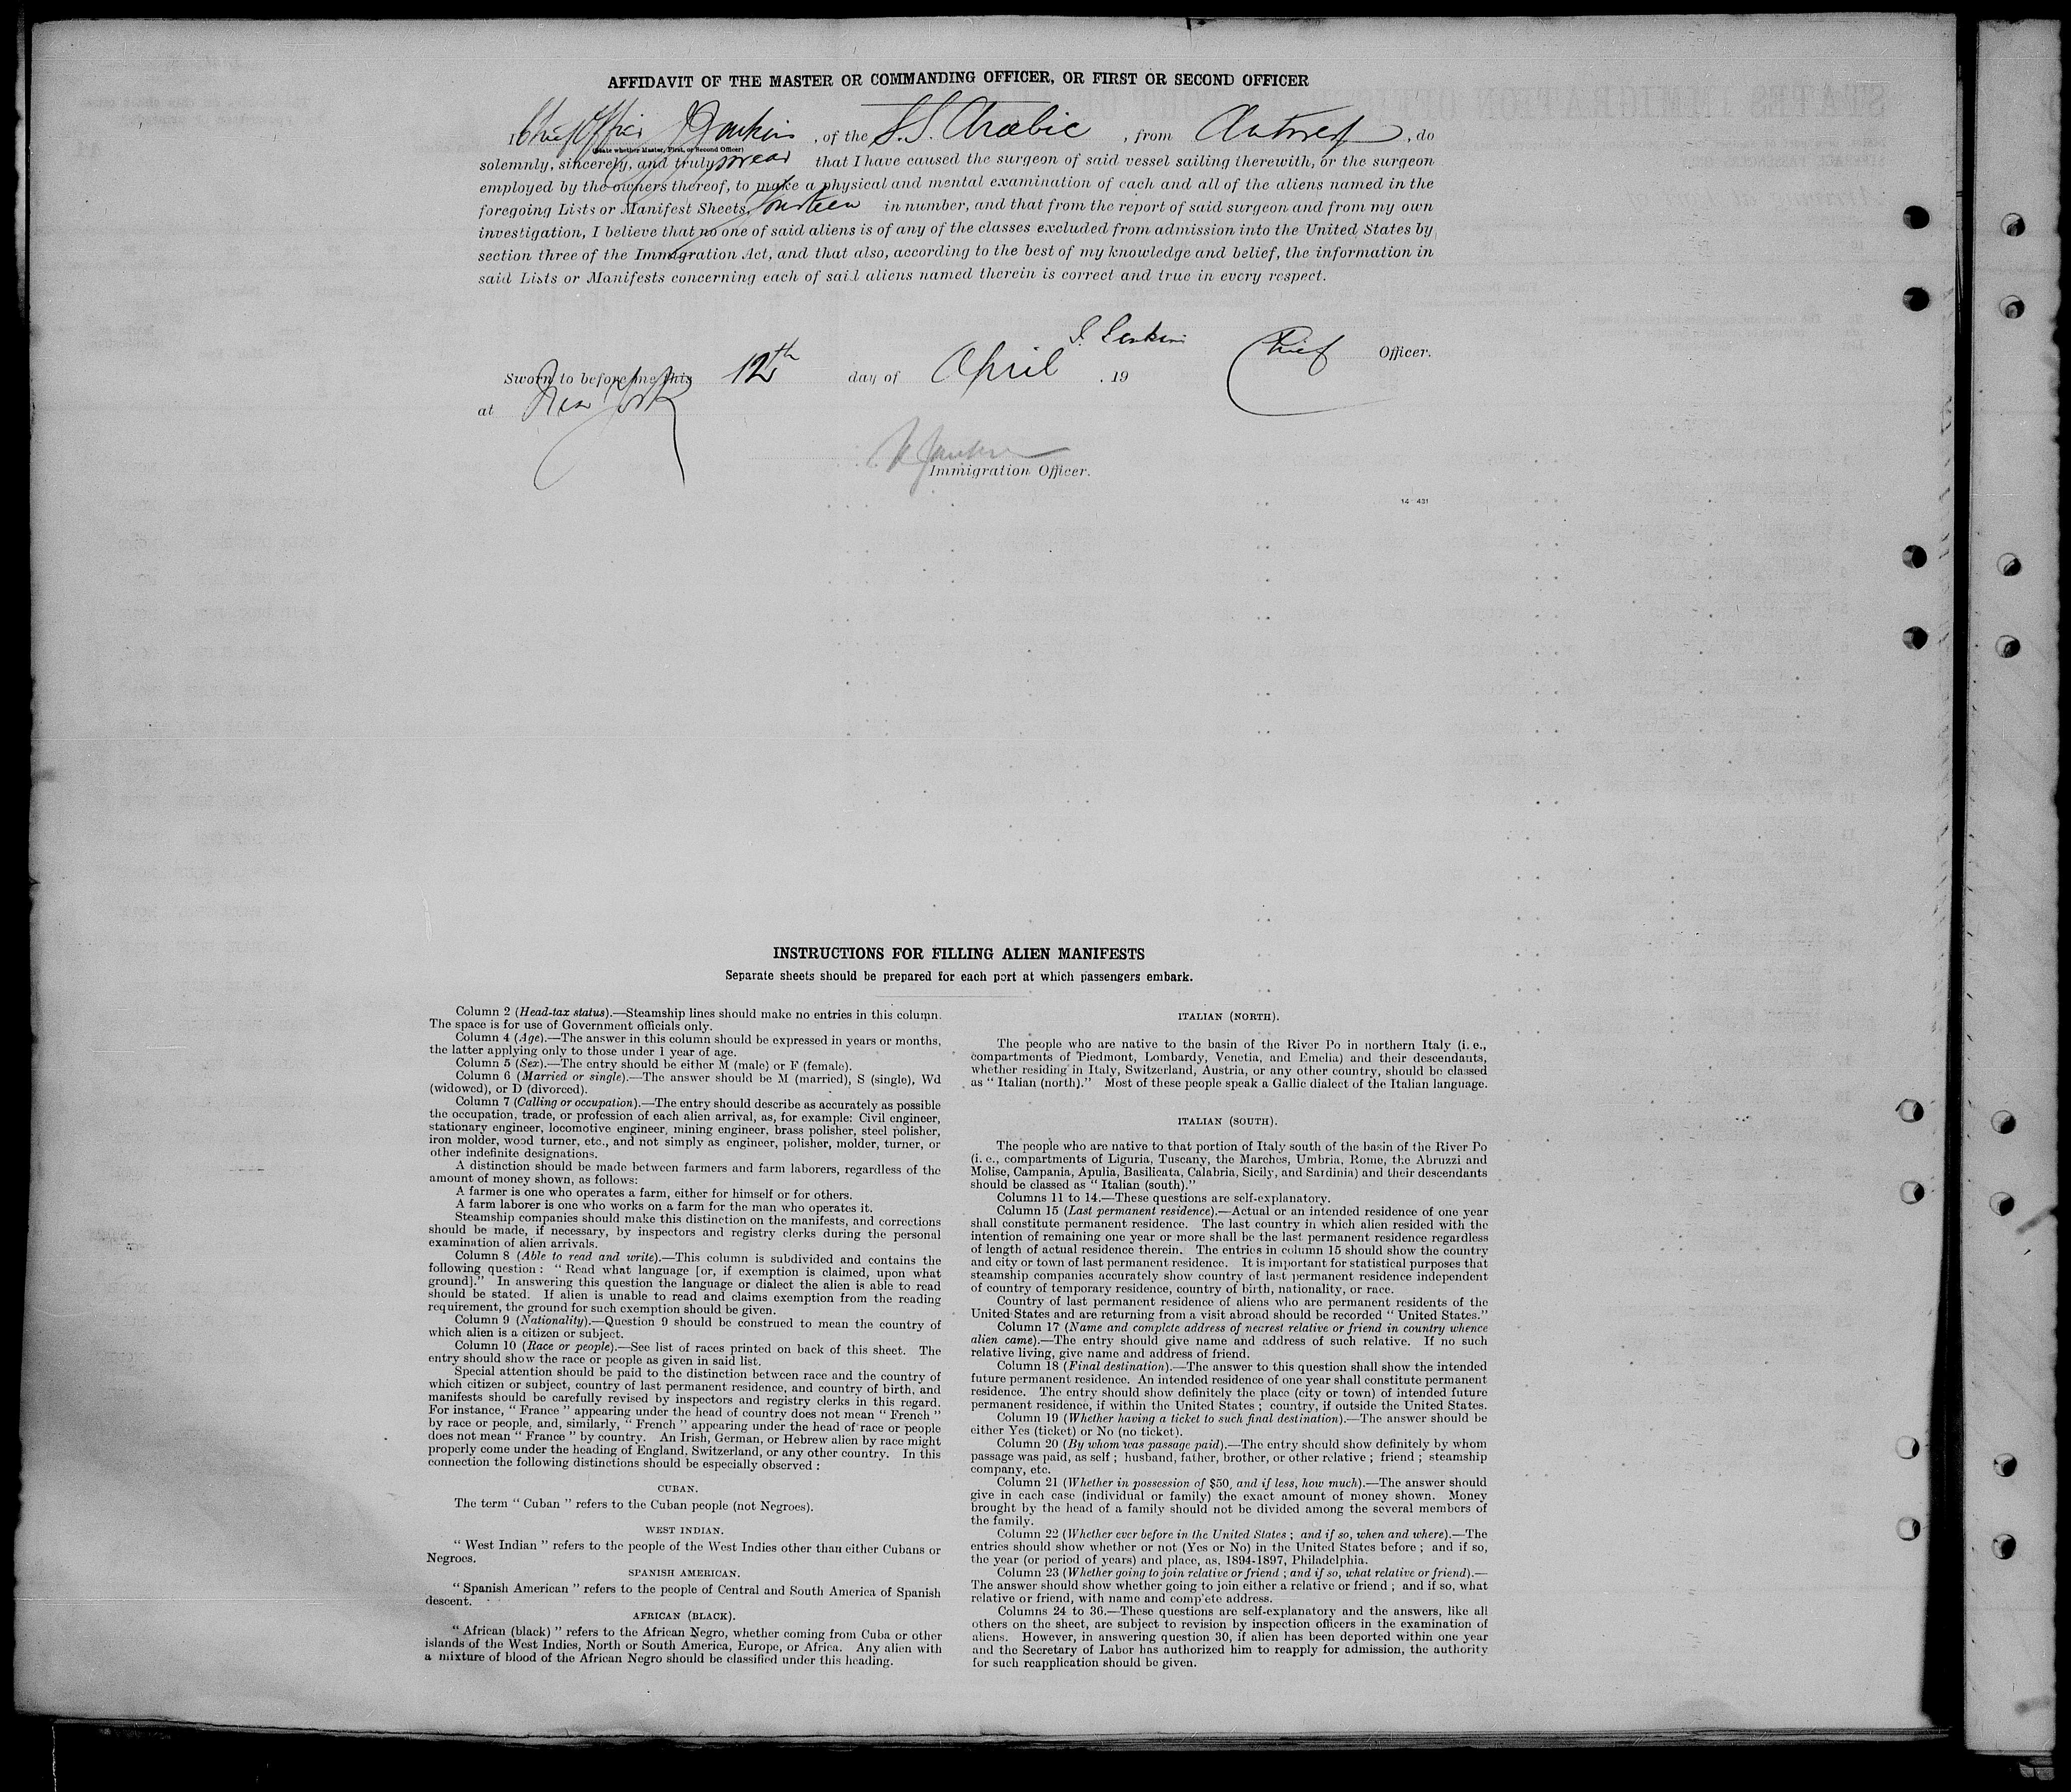 AFFIDAVIT OF THE MASTER OR COMMANDING OFFICER, OR FIRST OR SECOND OFFICER
I Chief Officer Jenkins, of the S.S. Arabic, from Antwerp, do
(State whether Master, First, or Second Officer)
solemnly, sincerely, and truly swear that I have caused the surgeon of said vessel sailing therewith, or the surgeon
employed by the owners thereof, to make a physical and mental examination of each and all of the aliens named in the
foregoing Lists or Manifest Sheets, fourteen in number, and that from the report of said surgeon and from my own
investigation, I believe that no one of said aliens is of any of the classes excluded from admission into the United States by
section three of the Immigration Act, and that also, according to the best of my knowledge and belief, the information in
said Lists or Manifests concerning each of said aliens named therein is correct and true in every respect.
Jenkins Chief Officer.
Sworn to before me this 12th day of April, 19
at New York
Immigration Officer.
14—431
INSTRUCTIONS FOR FILLING ALIEN MANIFESTS
Separate sheets should be prepared for each port at which passengers embark.
Column 2 (Head-tax status).—Steamship lines should make no entries in this column.
The space is for use of Government officials only.
Column 4 (Age).—The answer in this column should be expressed in years or months,
the latter applying only to those under 1 year of age.
Column 5 (Sex).—The entry should be either M (male) or F (female).
Column 6 (Married or single).—The answer should be M (married), S (single), Wd
(widowed), or D (divorced).
Column 7 (Calling or occupation).—The entry should describe as accurately as possible
the occupation, trade, or profession of each alien arrival, as, for example: Civil engineer,
stationary engineer, locomotive engineer, mining engineer, brass polisher, steel polisher,
iron molder, wood turner, etc., and not simply as engineer, polisher, molder, turner, or
other indefinite designations.
A distinction should be made between farmers and farm laborers, regardless of the
amount of money shown, as follows:
A farmer is one who operates a farm, either for himself or for others.
A farm laborer is one who works on a farm for the man who operates it.
Steamship companies should make this distinction on the manifests, and corrections
should be made, if necessary, by inspectors and registry clerks during the personal
examination of alien arrivals.
Column 8 (Able to read and write).—This column is subdivided and contains the
following question: "Read what language [or, if exemption is claimed, upon what
ground]." In answering this question the language or dialect the alien is able to read
should be stated. If alien is unable to read and claims exemption from the reading
requirement, the ground for such exemption should be given.
Column 9 (Nationality).—Question 9 should be construed to mean the country of
which alien is a citizen or subject.
Column 10 (Race or people).—See list of races printed on back of this sheet. The
entry should show the race or people as given in said list.
Special attention should be paid to the distinction between race and the country of
which citizen or subject, country of last permanent residence, and country of birth, and
manifests should be carefully revised by inspectors and registry clerks in this regard.
For instance, "France" appearing under the head of country does not mean "French"
by race or people, and, similarly, "French" appearing under the head of race or people
does not mean "France" by country. An Irish, German, or Hebrew alien by race might
properly come under the heading of England, Switzerland, or any other country. In this
connection the following distinctions should be especially observed:
CUBAN.
The term "Cuban" refers to the Cuban people (not Negroes).
WEST INDIAN.
"West Indian" refers to the people of the West Indies other than either Cubans or
Negroes.
SPANISH AMERICAN.
"Spanish American" refers to the people of Central and South America of Spanish
descent.
AFRICAN (BLACK).
"African (black)" refers to the African Negro, whether coming from Cuba or other
islands of the West Indies, North or South America, Europe, or Africa. Any alien with
a mixture of blood of the African Negro should be classified under this heading.
ITALIAN (NORTH).
The people who are native to the basin of the River Po in northern Italy (i. e.,
compartments of Piedmont, Lombardy, Venetia, and Emelia) and their descendants,
whether residing in Italy, Switzerland, Austria, or any other country, should be classed
as "Italian (north)." Most of these people speak a Gallic dialect of the Italian language.
ITALIAN (SOUTH).
The people who are native to that portion of Italy south of the basin of the River Po
(i. e., compartments of Liguria, Tuscany, the Marches, Umbria, Rome, the Abruzzi and
Molise, Campania, Apulia, Basilicata, Calabria, Sicily, and Sardinia) and their descendants
should be classed as "Italian (south)."
Columns 11 to 14.—These questions are self-explanatory.
Column 15 (Last permanent residence).—Actual or an intended residence of one year
shall constitute permanent residence. The last country in which alien resided with the
intention of remaining one year or more shall be the last permanent residence regardless
of length of actual residence therein. The entries in column 15 should show the country
and city or town of last permanent residence. It is important for statistical purposes that
steamship companies accurately show country of last permanent residence independent
of country of temporary residence, country of birth, nationality, or race.
Country of last permanent residence of aliens who are permanent residents of the
United States and are returning from a visit abroad should be recorded "United States."
Column 17 (Name and complete address of nearest relative or friend in country whence
alien came).—The entry should give name and address of such relative. If no such
relative living, give name and address of friend.
Column 18 (Final destination).—The answer to this question shall show the intended
future permanent residence. An intended residence of one year shall constitute permanent
residence. The entry should show definitely the place (city or town) of intended future
permanent residence, if within the United States; country, if outside the United States.
Column 19 (Whether having a ticket to such final destination).—The answer should be
either Yes (ticket) or No (no ticket).
Column 20 (By whom was passage paid).—The entry should show definitely by whom
passage was paid, as self; husband, father, brother, or other relative; friend; steamship
company, etc.
Column 21 (Whether in possession of $50, and if less, how much).—The answer should
give in each case (individual or family) the exact amount of money shown. Money
brought by the head of a family should not be divided among the several members of
the family.
Column 22 (Whether ever before in the United States; and if so, when and where).—The
entries should show whether or not (Yes or No) in the United States before; and if so,
the year (or period of years) and place, as, 1894-1897, Philadelphia.
Column 23 (Whether going to join relative or friend; and if so, what relative or friend).—
The answer should show whether going to join either a relative or friend; and if so, what
relative or friend, with name and complete address.
Columns 24 to 36.—These questions are self-explanatory and the answers, like all
others on the sheet, are subject to revision by inspection officers in the examination of
aliens. However, in answering question 30, if alien has been deported within one year
and the Secretary of Labor has authorized him to reapply for admission, the authority
for such reapplication should be given.